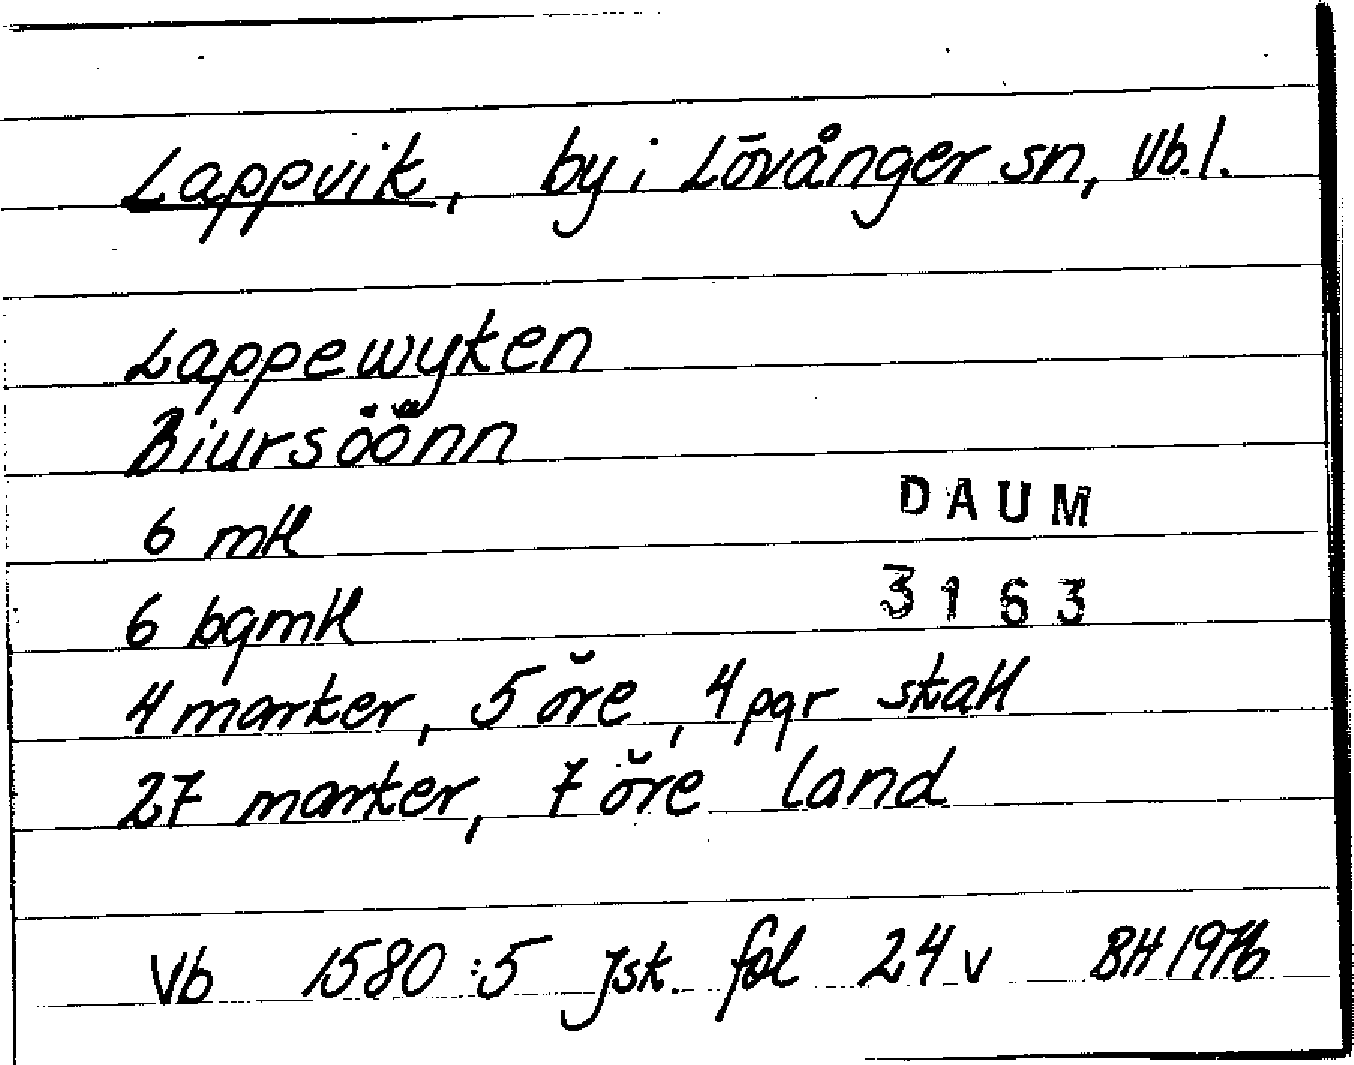 Lappvik, by i Lövånger sn, Vb.l.
Lappewyken
Biursöönn
6 mtl
6 bgmtl
4 marker, 5 öre, 4 pgr skatt
27 marker, 7 öre land
DAUM
3163
Vb 1580:5 Jsk. fol 24 v BH 1976